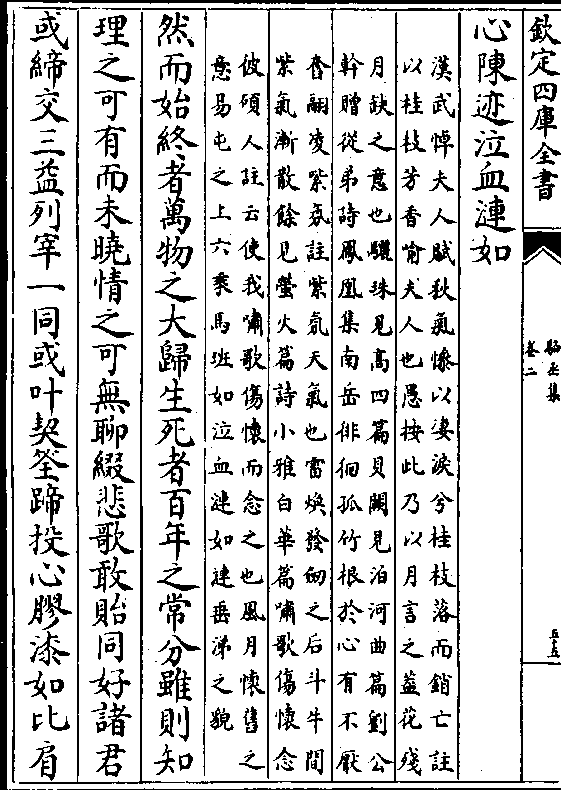 欽定四庫全書
駱丞集
卷二
五十五
心陳迹泣血漣如
漢武悼夫人賦秋氣憯以凄淚兮桂枝落而銷亡註
以桂枝芳香喻夫人也愚按此乃以月言之蓋花殘
月缺之意也驪珠見高四篇貝闕見泊河曲篇劉公
幹贈從弟詩鳳凰集南岳徘徊孤竹根於心有不厭
奮翮凌紫氛註紫氛天氣也雷煥發劒之后斗牛間
紫氣漸散餘見螢火篇詩小雅白華篇嘯歌傷懷念
彼碩人註云使我嘯歌傷懷而念之也風月懷舊之
意易屯之上六乘馬班如泣血漣如連垂涕之貌
然而始終者萬物之大歸生死者百年之常分雖則知
理之可有而未曉情之可無聊綴悲歌敢貽同好諸君
或締交三益列宰一同或叶契筌蹄投心膠漆如比肩